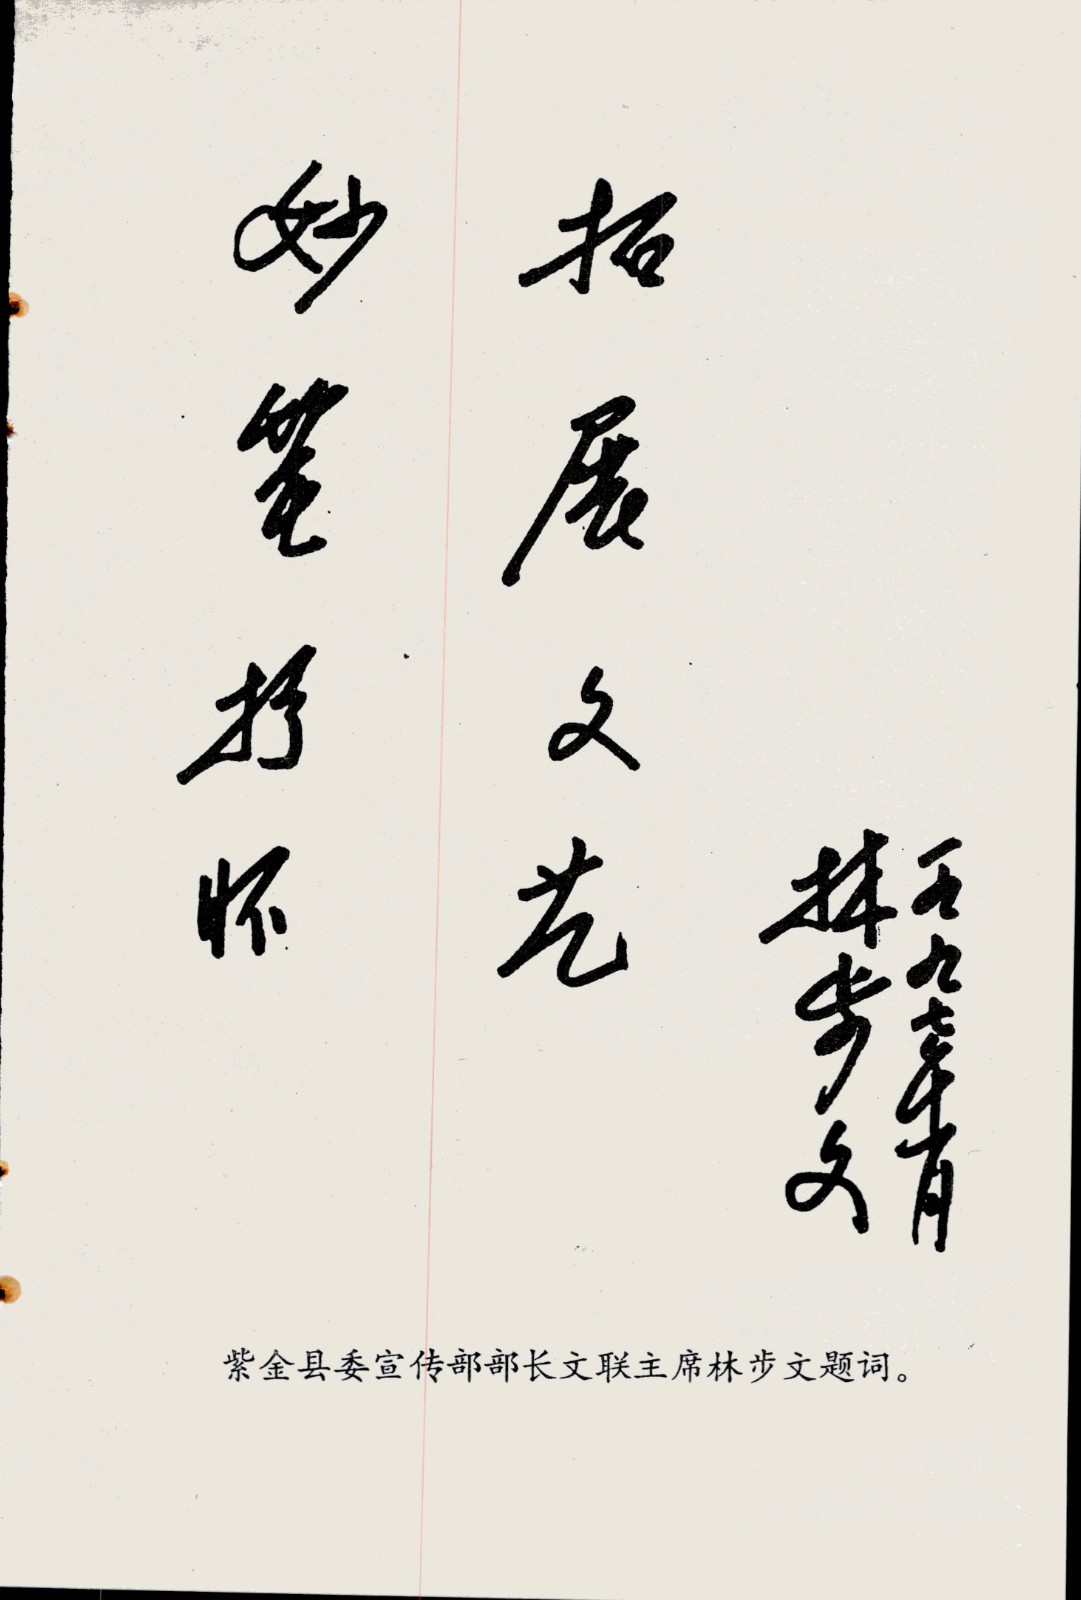 妙笔抒怀
拓展文艺
林步文
一九九七年月
紫金县委宣传部部长文联主席林步文题词。